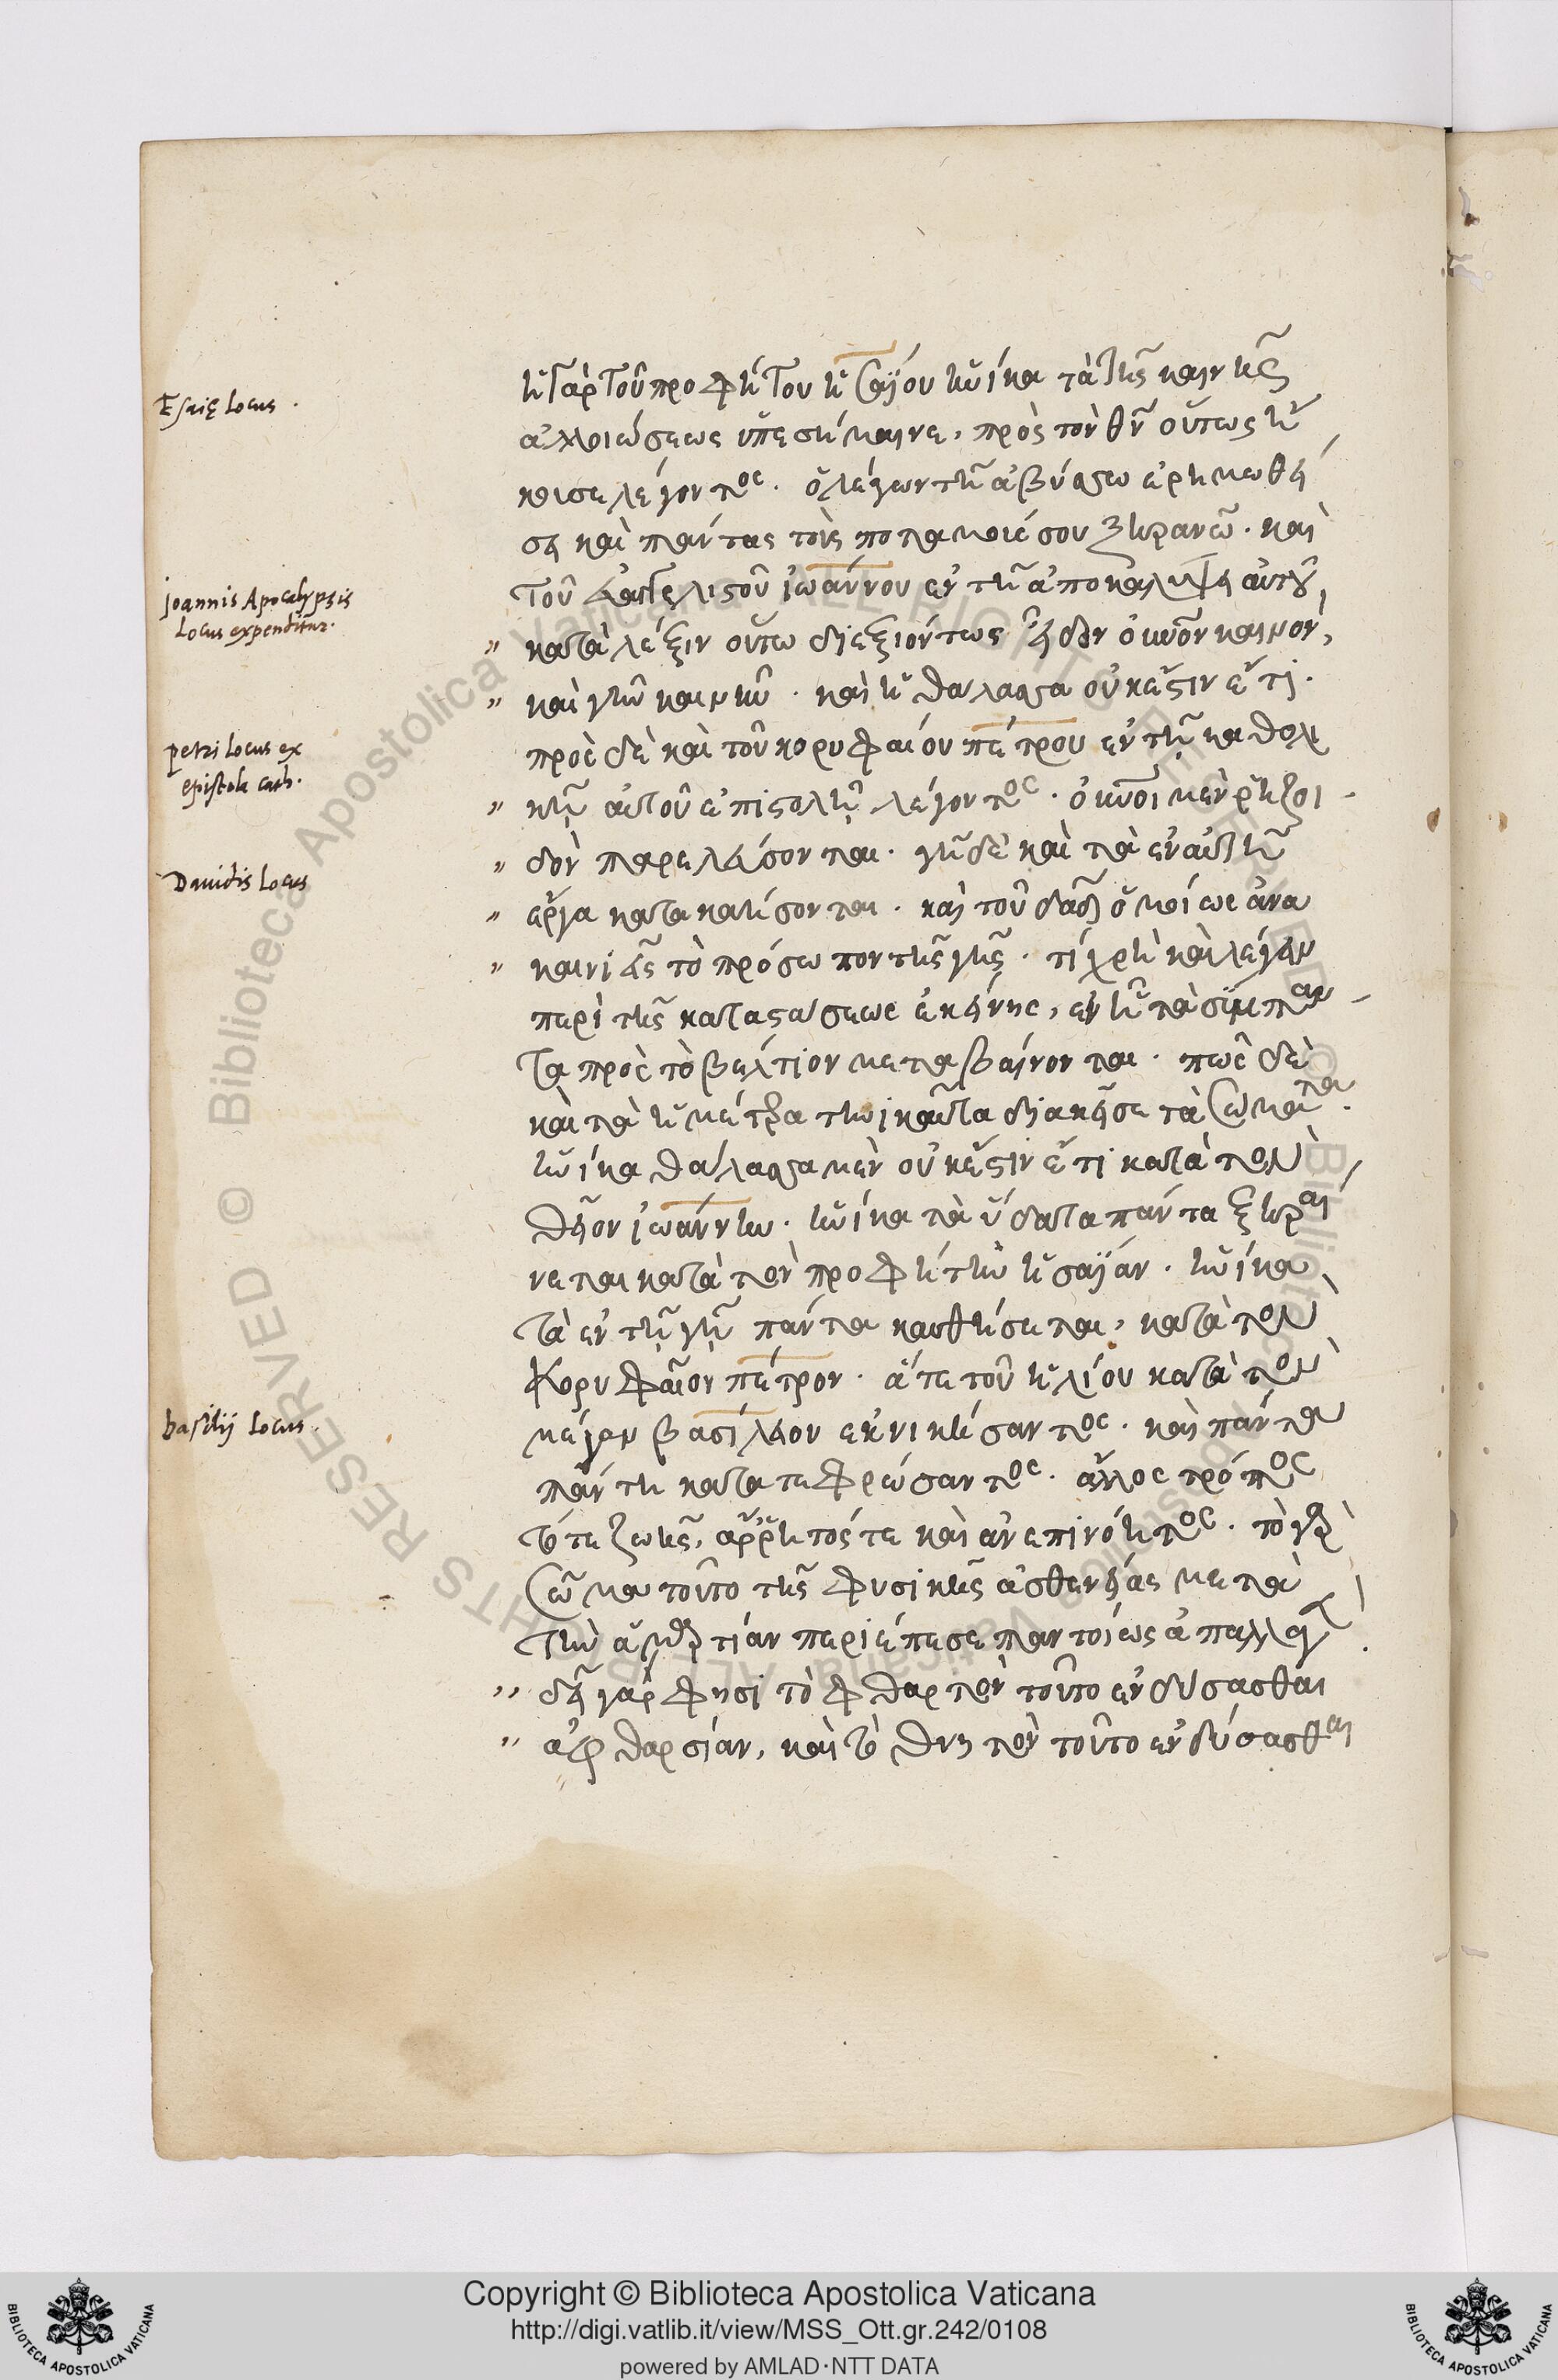 Esaię locus.
ἢ γὰρ τοῦ προφήτου ἡσαΐου ἡνίκα τὰ τῆς καινῆς
ἀλλοιώσεως ὑπεσήμαινε, πρὸς τὸν θν̅ οὕτως
λέγοντος. ὁ λέγων τῇ ἀβύσσω ἐρημωθή
ση καὶ πάντας τοὺς ποταμούς σου ξηρανῶ. καὶ
Joannis Apocalypsis
locus expenditur.
τοῦ εὐαγγελιστοῦ ἰωάννου ἐν τῇ ἀποκαλύψει αὐτοῦ,
κατὰ λέξιν οὕτω διεξιόντως εἶδον οὐνον καινὸν,
καὶ γῆν καινήν. καὶ ἡ θάλασσα οὐκ ἔστιν ἔτι.
petri locus ex
epistola cath.
πρὸς δὲ καὶ τοῦ κορυφαίου πέτρου ἐν τῇ καθολι
κῇ αὐτοῦ ἐπιστολῇ λέγοντος. οὐνοὶ μὲν ῥηζοι
δὸν παρελεύσονται. γῆ δὲ καὶ τὰ ἐν αὐτῇ
Davidis locus
ἔργα κατακαήσονται. καὶ τοῦ δαδ ὁμοίως ἀνα
καινιεῖς τὸ πρόσωπον τῆς γῆς. τί χρὴ καὶ λέγειν
περὶ τῆς καταστάσεως ἐκείνης, ἐν ᾗ τὰ σύμπαν
τα πρὸς τὸ βέλτιον μεταβαίνονται. πῶς δὲ
καὶ τὰ ἡμέτερα τηνικαῦτα διακεῖσεται σώματα.
ἡνίκα θάλασσα μὲν οὐκ ἔστιν ἔτι κατὰ τὸν
θεῖον ἰωάννην. ἡνίκα τὰ ὕδατα πάντα ξηραί
νεται κατὰ τὸν προφήτην ἡσαΐαν. ἡνίκα
τὰ ἐν τῇ γῇ πάντα καυθήσεται, κατὰ τὸν
κορυφαῖον πέτρον. ἅτε τοῦ ἡλίου κατὰ τὸν
basilij locus.
μέγαν βασίλειον ἐκνικήσαντος. καὶ πάντα
πάντη κατατεφρώσαντος. ἄλλος τρόπος
τότε ζωῆς, ἄρρητός τε καὶ ἀνεπινόητος. τὸ γὰρ
σῶμα τοῦτο τῆς φυσικῆς ἀσθενείας μετὰ
τὴν ἁμαρτίαν περιέπεσε παντοίως
δεῖ γάρ φησι τὸ φθαρτὸν τοῦτο ἐνδύσασθαι
ἀφθαρσίαν, καὶ τὸ θνητὸν τοῦτο ἐνδύσασθαι
Copyright © Biblioteca Apostolica Vaticana
http://digi.vatlib.it/view/MSS_Ott.gr.242/0108
powered by AMLAD·NTT DATA